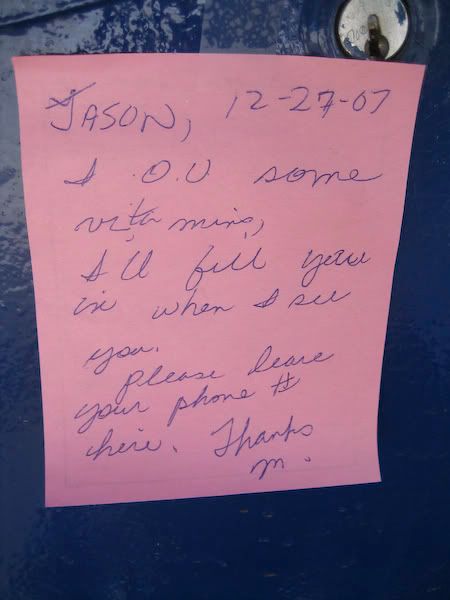 JASON, 12-27-07
I O.U some
vita mins,
I'll fill you
in when I see
you.
please leave
your phone #
here. Thanks
m.